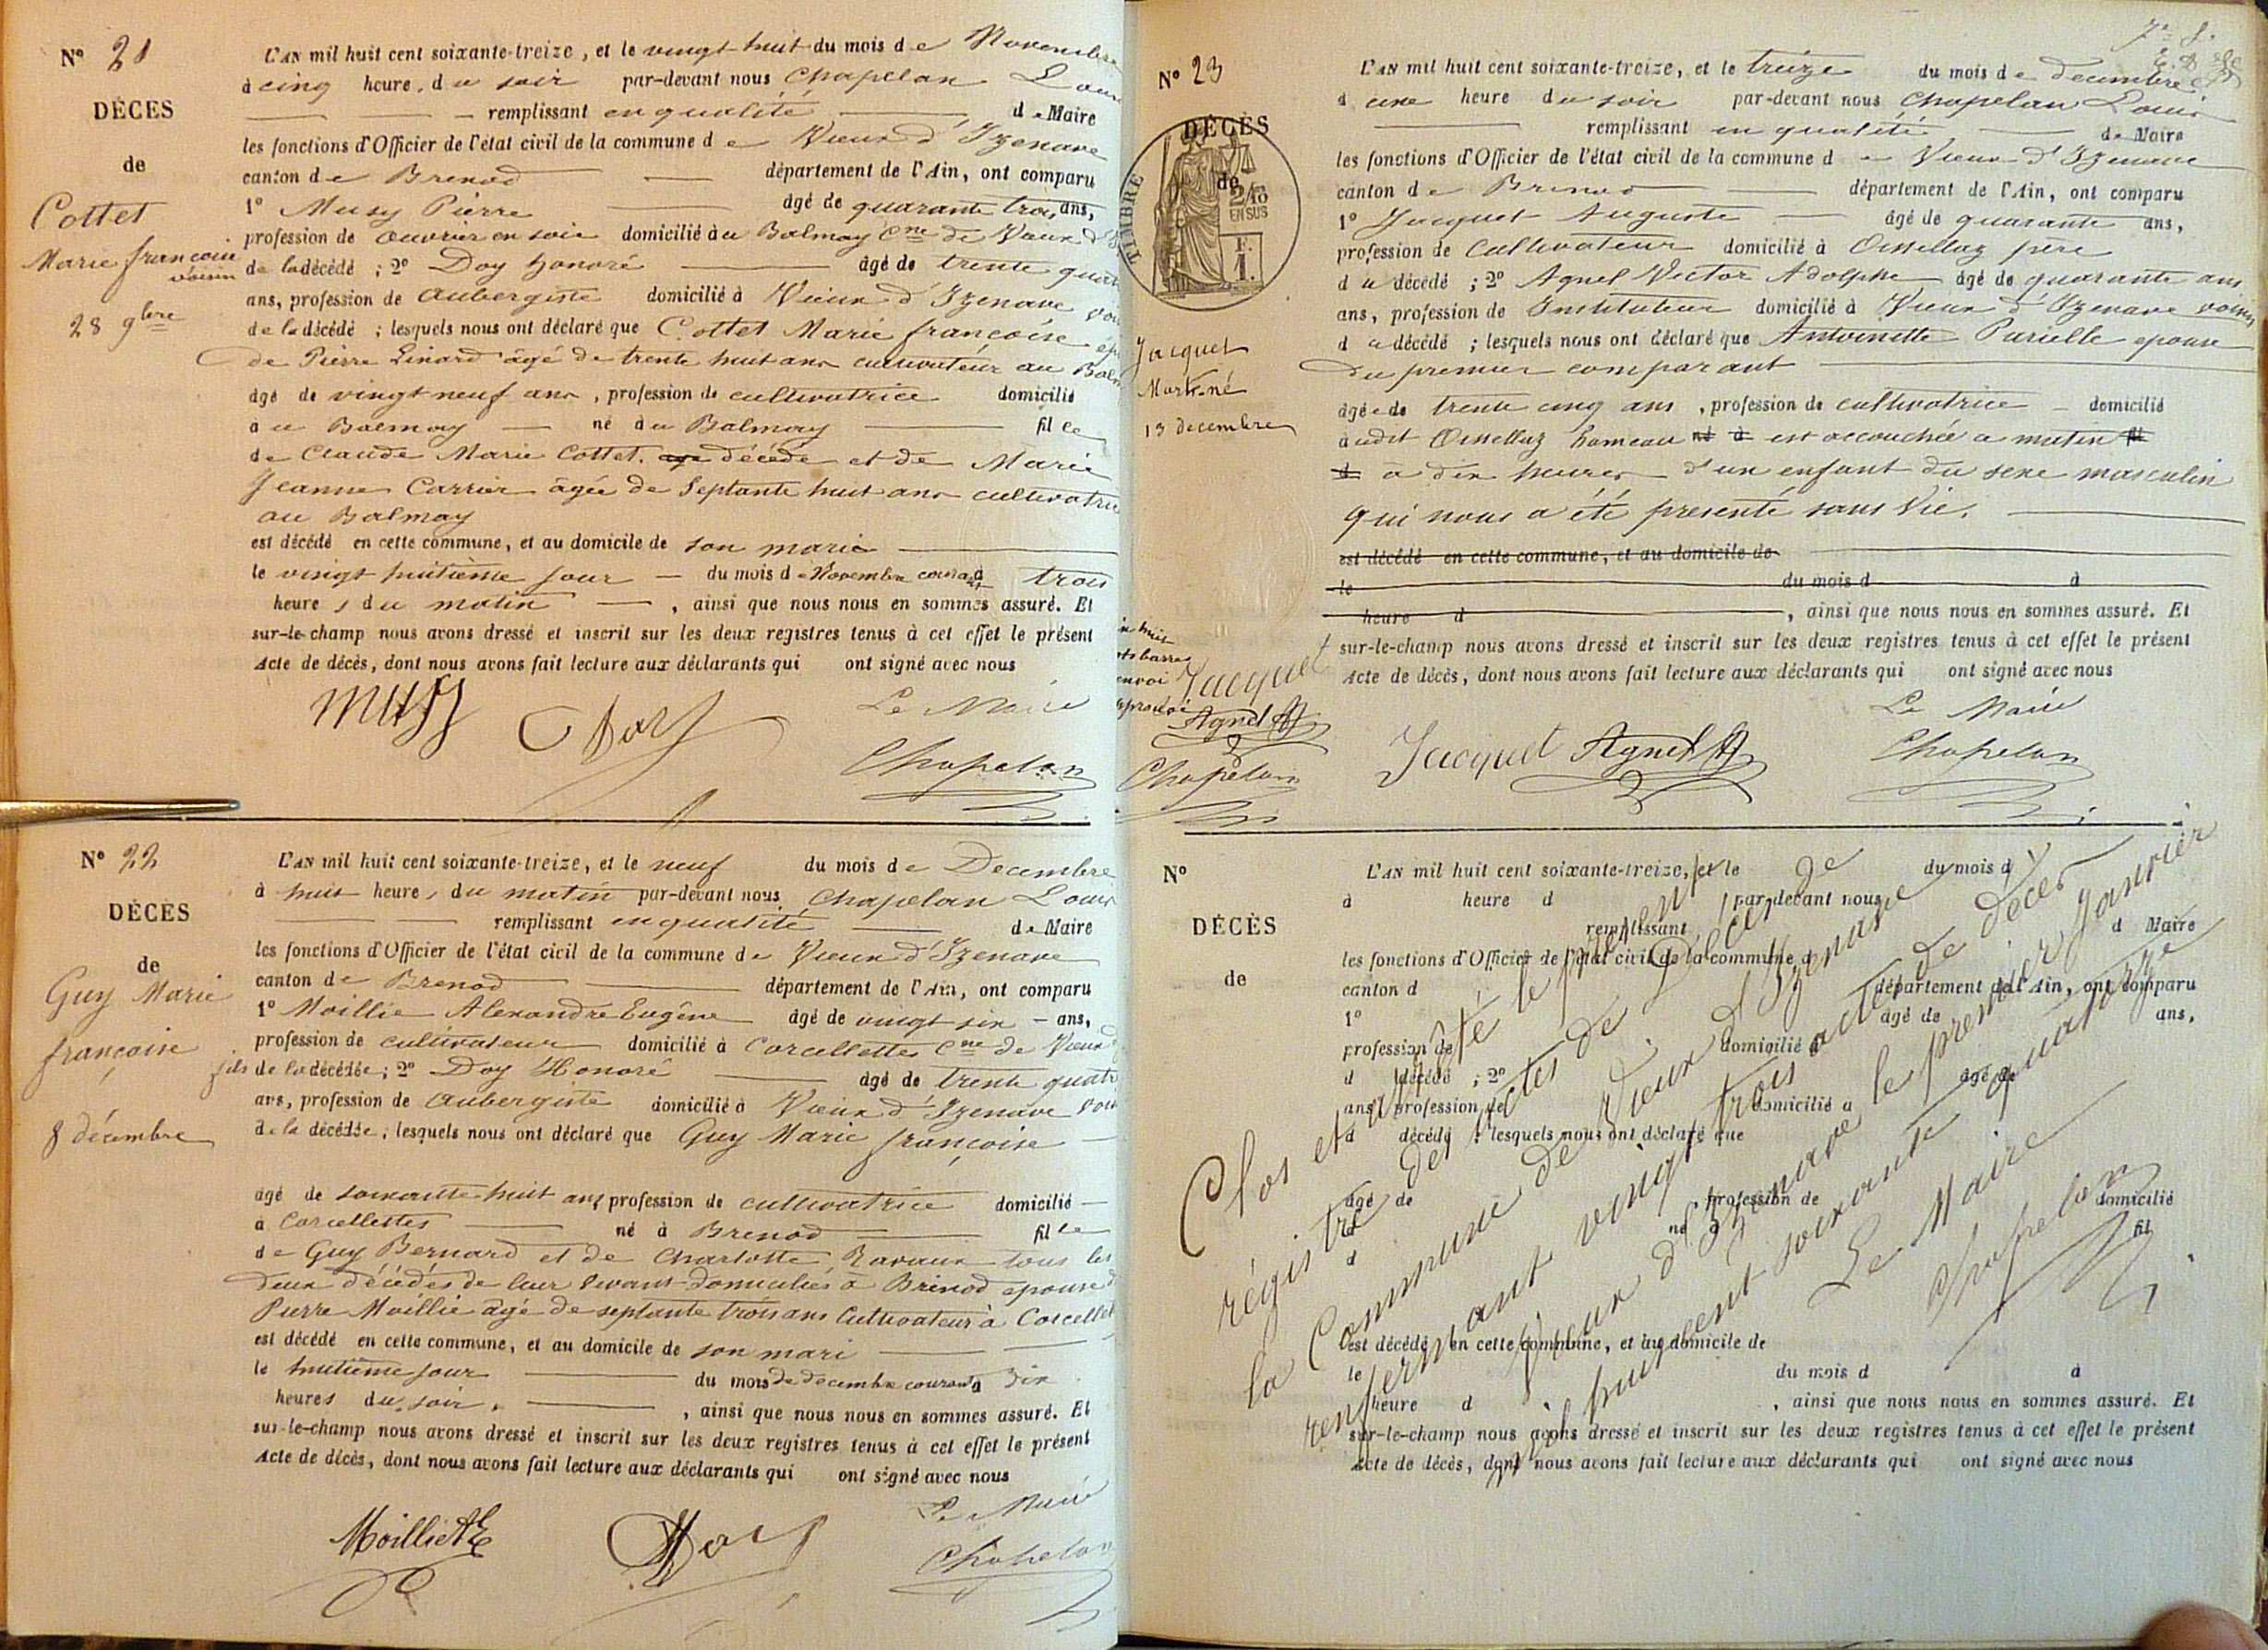 Nº 21
DÉCES
de
Cottet
Marie françoise
voisin
28 9bre
L'AN mil huit cent soixante-treize, et le vingt huit du mois de Novembre
à cinq heure, du soir par-devant nous Chapelan Louis
remplissant en qualité de Maire
les fonctions d'Officier de l'état civil de la commune de Vieux d'Izenave
canton de Brenod département de l'Ain, ont comparu
1º Musy Pierre âgé de quarante trois ans,
profession de Ouvrier en soie domicilié à au Balmay Cne de Vieux d'
de la décédé ; 2º Doy honoré âgé de trente quatre
ans, profession de Aubergiste domicilié à Vieux d'Izenave
de la décédé ; lesquels nous ont déclaré que Cottet Marie françoise
de Pierre Linard âgé de trente huit ans cultivateur au Balm
âgé de vingt neuf ans, profession de cultivatrice domicilié
à au Balmay né à au Balmay fille
de Claude Marie Cottet. décédé et de Marie
Jeanne Carrier âgée de Septante huit ans cultivatrice
au Balmay
est décédé en cette commune, et au domicile de son marie
le vingt huitième jour du mois de Novembre courant à trois
heure s du matin , ainsi que nous nous en sommes assuré. Et
sur-le-champ nous avons dressé et inscrit sur les deux registres tenus à cet effet le présent
Acte de décès, dont nous avons fait lecture aux déclarants qui ont signé avec nous
Le Maire
Musy Doy
Chapelan
Nº 22
DÉCÈS
de
Guy Marie
françoise
8 décembre
L'AN mil huit cent soixante-treize, et le neuf du mois de Decembre
à huit heures du matin par-devant nous Chapelan Louis
remplissant en qualité de Maire
les fonctions d'Officier de l'état civil de la commune de Vieux d'Izenave
canton de Brenod département de l'Ain, ont comparu
1º Moillie Alexandre Eugêne âgé de vingt six ans,
profession de cultivateur domicilié à Corcellettes Cne de Vieux d
fils de la décédée ; 2º Doy Honoré âgé de trente quatre
ans, profession de Aubergiste domicilié à Vieux d'Izenave
de la décédée ; lesquels nous ont déclaré que Guy Marie françoise
âgé de soixante huit ans profession de cultivatrice domicilié
à Corcellettes né à Brenod fille
de Guy Bernard et de Charlotte Ravaux tous les
deux décédés de leur vivant domiciliés à Brénod epouse d
Pierre Moillie agé de septante trois ans Cultivateur à Corcellet
est décédé en cette commune, et au domicile de son mari
le huitième jour du mois de decembre courant à dix
heures du soir. , ainsi que nous nous en sommes assuré. Et
sur-le-champ nous avons dressé et inscrit sur les deux registres tenus à cet effet le présent
Acte de décès, dont nous avons fait lecture aux déclarants qui ont signé avec nous
Le Maire
Moillie AE Doy
Chapelan
Nº 23
DÉCÈS
de
TIMBRE
2/10
EN SUS
F.
1.
Jacquet
Mort-né
13 decembre
L'AN mil huit cent soixante-treize, et le treize du mois de decembre
à une heure du soir par-devant nous Chapelan Louis
remplissant en qualité de Maire
les fonctions d'Officier de l'état civil de la commune de Vieux d'Izenave
canton de Brenod département de l'Ain, ont comparu
1º Jacquet Auguste âgé de quarante ans,
profession de Cultivateur domicilié à Oissellaz père
du décédé ; 2º Agnel Victor Adolphe âgé de quarante ans
ans, profession de Instituteur domicilié à Vieux d'Izenave voisin
du décédé ; lesquels nous ont déclaré que Antoinette Purielle epouse
du premier comparant
âgée de trente cinq ans, profession de cultivatrice domicilié
à udit Oissellaz hameau né à est accouchée ce matin fil
d à dix heures d'un enfant du sexe masculin
qui nous a été presenté sans vie.
est décédé en cette commune, et au domicile de
le du mois d à
heure d , ainsi que nous nous en sommes assuré. Et
sur-le-champ nous avons dressé et inscrit sur les deux registres tenus à cet effet le présent
Acte de décès, dont nous avons fait lecture aux déclarants qui ont signé avec nous
huit
barres
envoi
Jacquet
Agnel
Chapelan
Le Maire
Jacquet Agnel
Chapelan
Nº
DÉCÈS
de
L'AN mil huit cent soixante-treize, et le du mois d
à heure d par-devant nous
remplissant d Maire
les fonctions d'Officier de l'état civil de la commune d
canton d département de l'Ain, ont comparu
1º âgé de ans,
profession de domicilié à
d décédé ; 2º âgé de
ans, profession de domicilié à
d décédé ; lesquels nous ont déclaré que
âgé de profession de domicilié
à né à fil
d
est décédé en cette commune, et au domicile de
le du mois d à
heure d , ainsi que nous nous en sommes assuré. Et
sur-le-champ nous avons dressé et inscrit sur les deux registres tenus à cet effet le présent
Acte de décès, dont nous avons fait lecture aux déclarants qui ont signé avec nous
Clos et arrêté le présent
régistre des actes de Décès de
la Commune de Vieux d'Izenave
renfermant vingt trois actes de décès
Vieux d'Izenave le premier Janvier
mil huit cent soixante quatorze
Le Maire
Chapelan